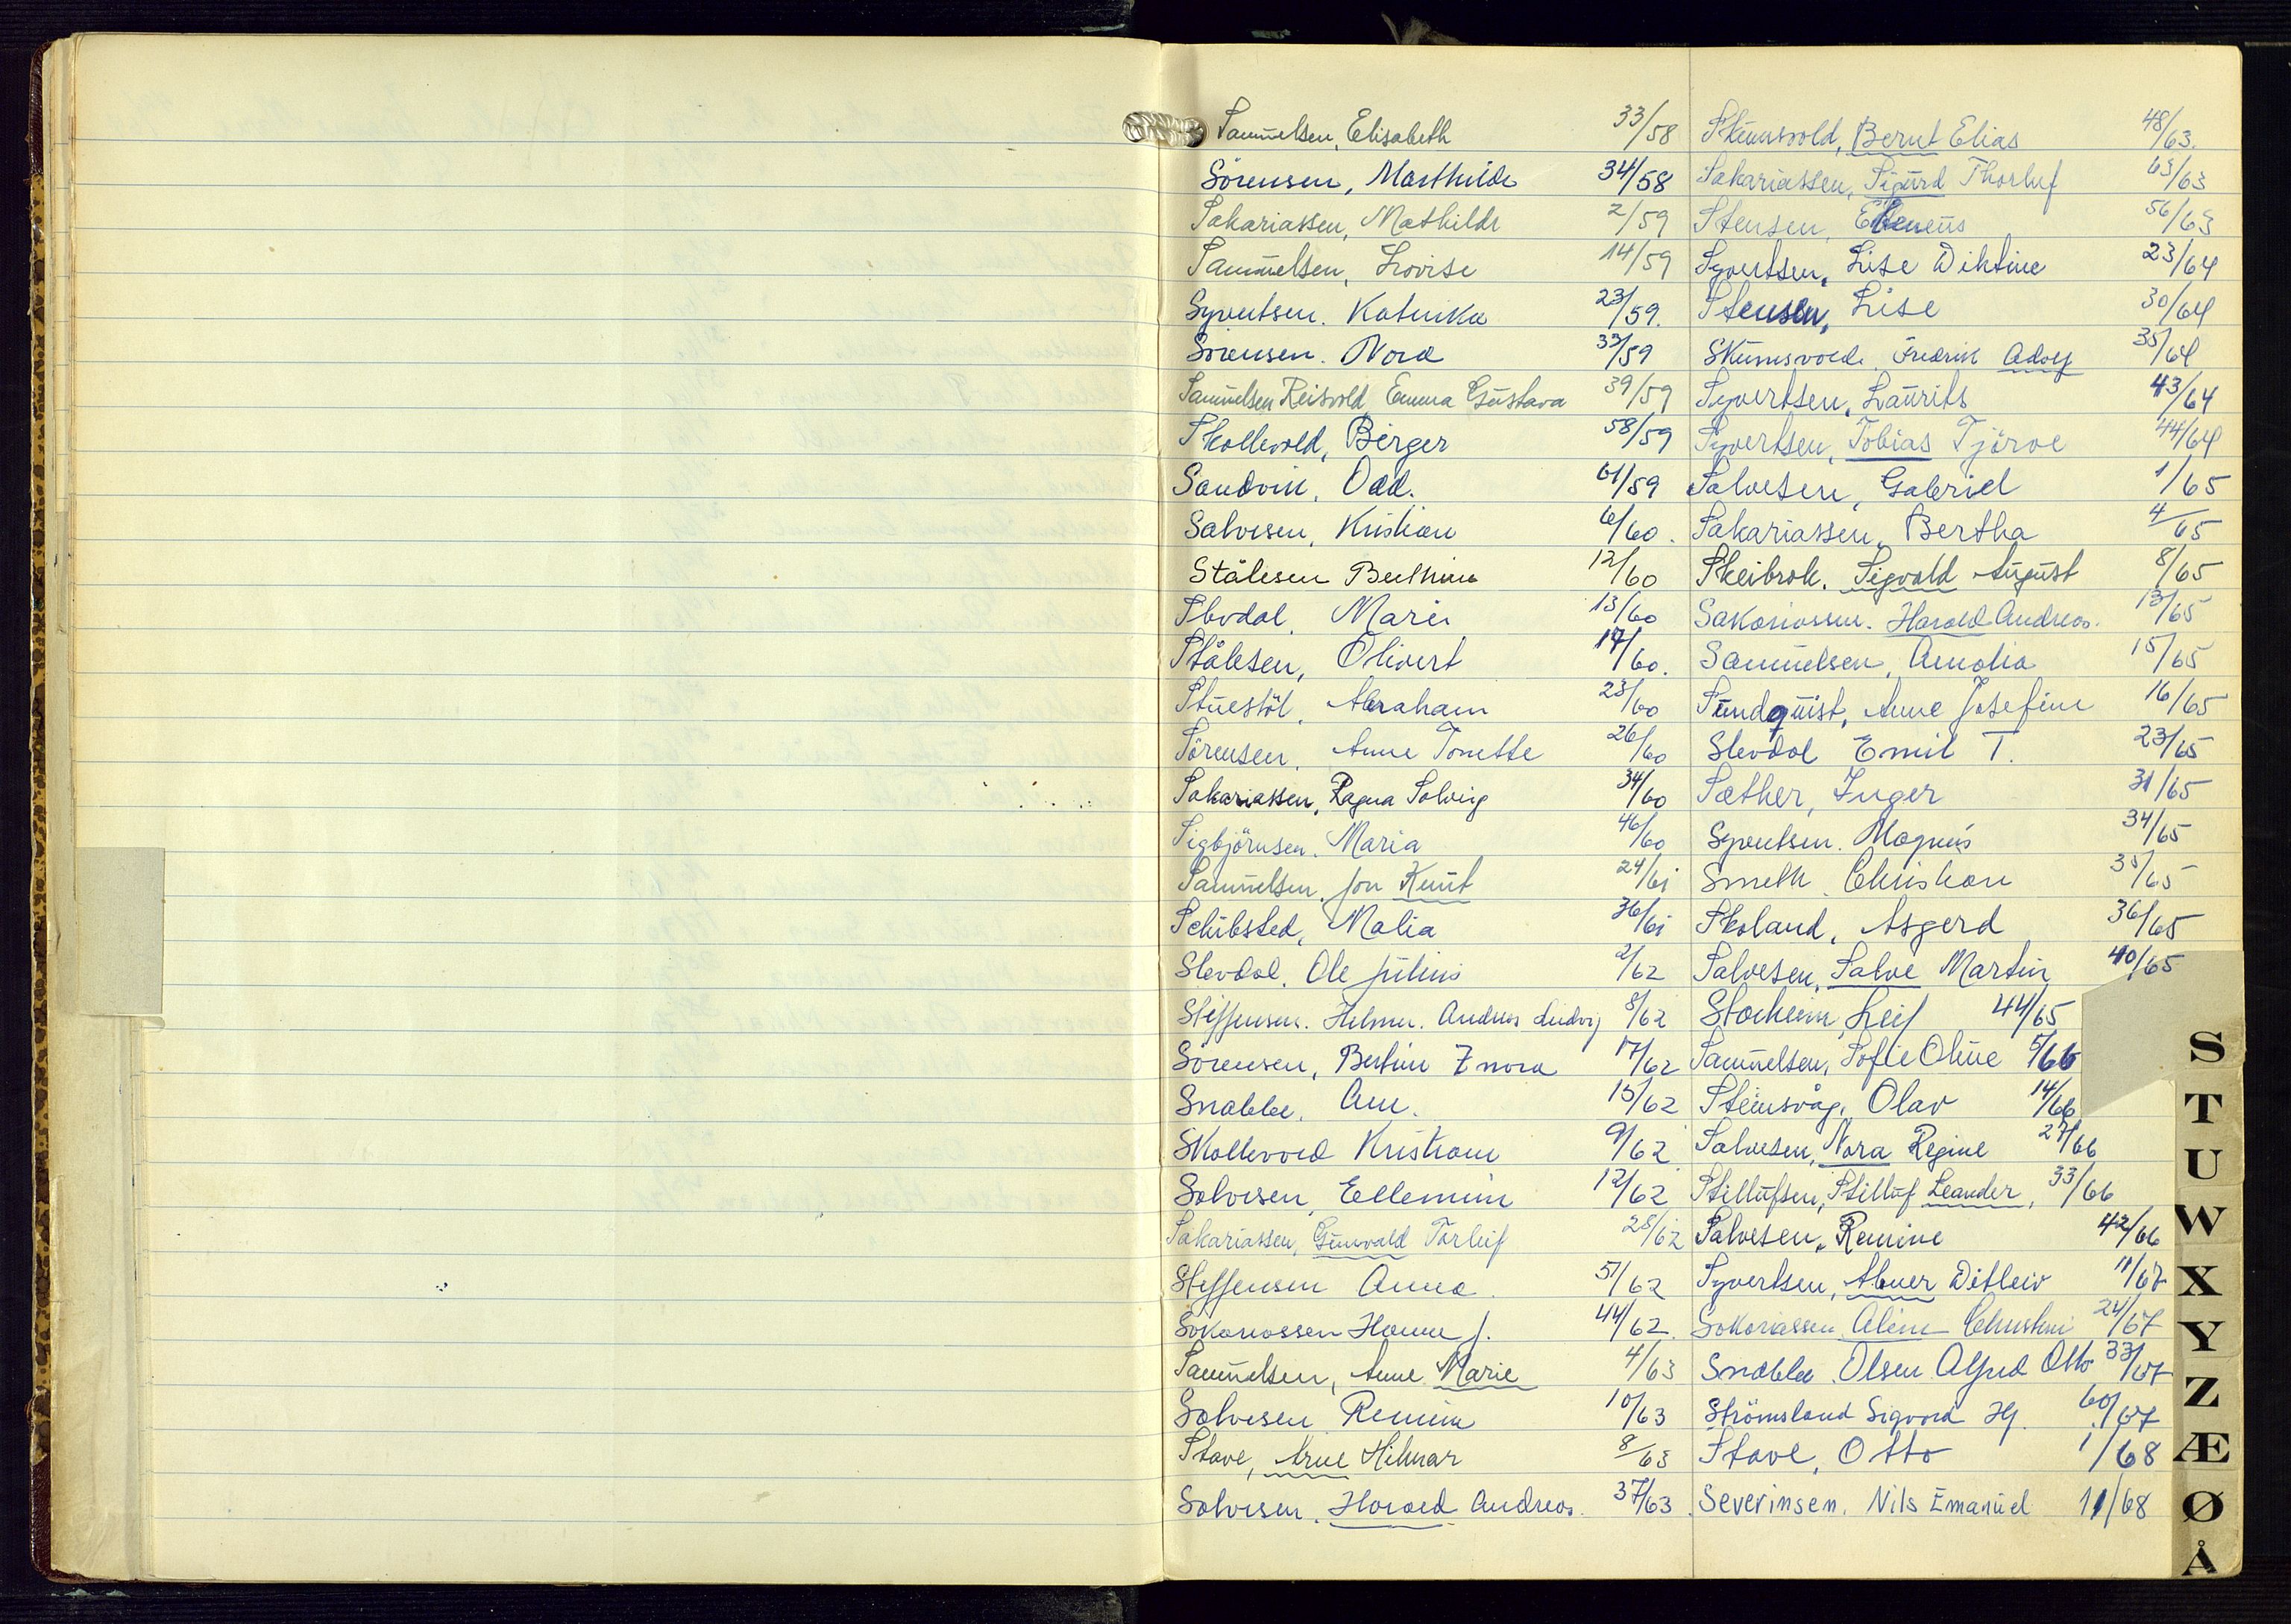 Samüelsen, Elisabeth 33/58
Sörensen, Marthilde 34/58
Sakariassen, Mathilde 2/59
Samüelsen, Lovise 14/59
Syvertsen. Katinka 23/59.
Sörensen. Nora 33/59
Samüelsen Reisvold, Emma Güstava 39/59
Skollevold, Birger 58/59
Sandvik, Odd. 61/59
Salvesen, Kristian 6/60.
Stålesen Berthine 12/60
Slevdal, Marie 13/60
Stålesen, Olivert 17/60.
Stüestöl, Abraham 23/60
Sörensen, Anne Tonette 26/60
Sakariassen, Ragna Solveig 34/60
Sigbjörnsen, Maria 46/60
Samüelsen, Jon Knüt 24/61
Schibsted, Malia 36/61
Slevdal, Ole Jülius 2/62
Steffensen. Helmer. Andreas Ludvig 8/62
Sörensen, Bertine Znora 17/62
Snabbe, Ane. 15/62
Skollevold Kristiane 9/62
Salvesen, Ellemine 12/62
Sakariassen, Gunvald Torleif 28/62
Steffensen Anna. 51/62
Sakariassen Hanne J. 44/62.
Samüelsen, Anne Marie 4/63
Salvesen Remine 10/63
Stave, Arne Hilmar 8/63
Salvesen, Harald Andreas. 37/63
Skümsvold, Bernt Elias 48/63.
Sakariassen, Sigürd Thorluf 63/63
Stensen, Ebeneüs 56/63
Syvertsen, Lise Diktine 23/64
Stensen, Lise 30/64
Skümsvold. Fredrik Adolf 35/64
Syvertsen, Laürits 43/64
Syvertsen, Tobias Tjörve 44/64
Salvesen, Gabriel 1/65
Sakariassen, Bertha 4/65
Skeibrok. Sigvald Aügüst 8/65
Sakariassen. Harald Andreas. 13/65
Samüelsen, Amalia 15/65
Sündqüist, Anne Josefine 16/65
Slevdal Emil T. 23/65
Sæther, Inger 31/65
Syvertsen. Magnüs 34/65
Smeth. Christian 35/65
Skoland, Asgerd 36/65
Salvesen, Salve Martin 40/65
Storheim, Leif 44/65
Samüelsen, Sofie Oline 5/66
Steinsvåg, Olav 14/66
Salvesen, Nora Regine 27/66
Stillüfsen, Stillüf Leander, 33/66
Salvesen, Remine 42/66
Syvertsen, Abner Ditleiv 11/67
Sakariassen Aline Christine 24/67
Snabbe Olsen Alfred Otto 33/67
Strömsland Sigvard Hj. 60/67
Stave, Otto 1/68
Severinsen, Nils Emanüel 11/68
S
T
U
W
X
Y
Z
Æ
Ø
Å